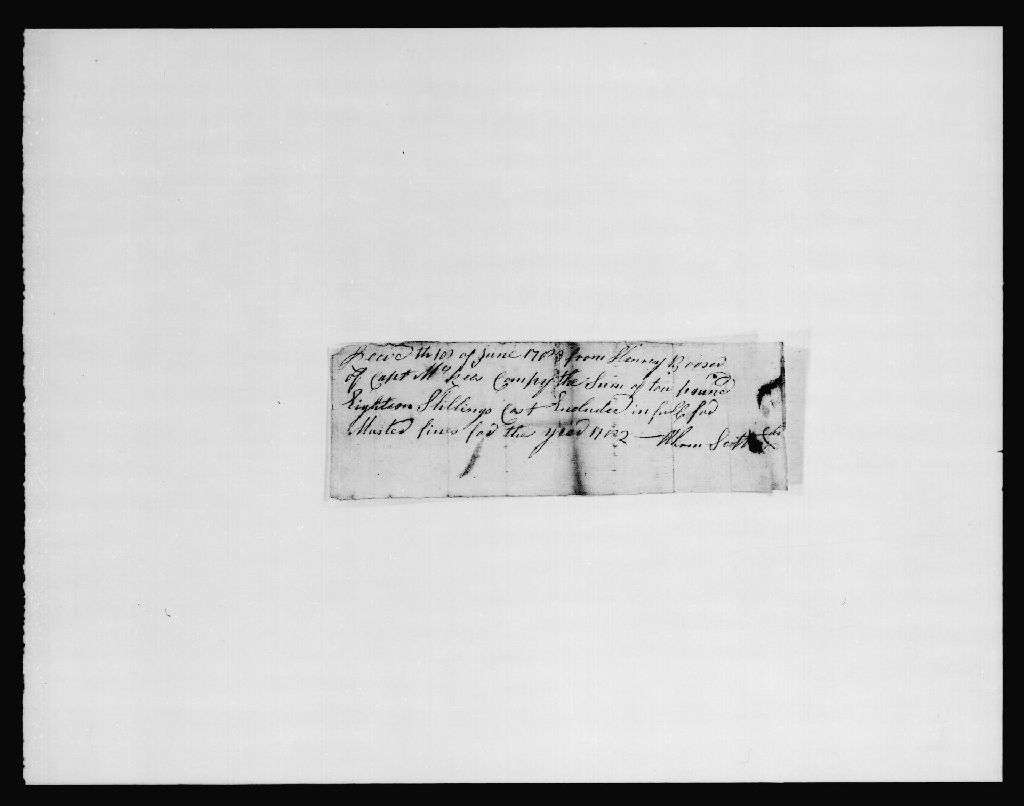 Recived th 10 of June 1783 from Henry Booser
of Capt Mc Kees Compy the Sum of tow pound
Eighteen Shillings Cost Encluded in full for
Muster fines for the year 1782 — Abram Scott